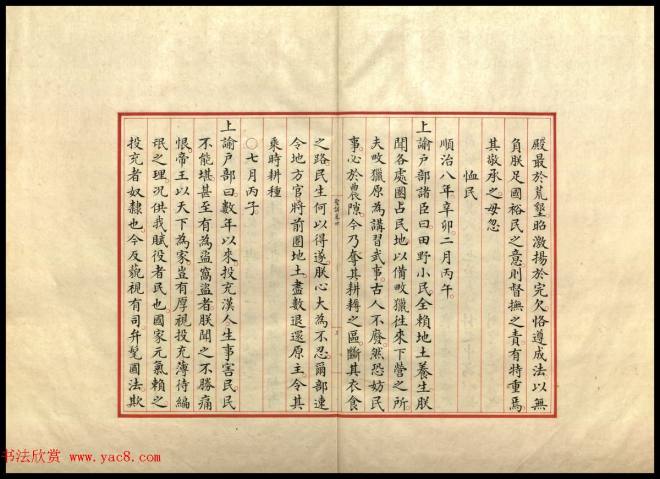 殿最於荒墾昭激揚於完欠恪遵成法以無
負朕足國裕民之意則督撫之責有特重焉
其敬承之毋忽
恤民
順治八年辛卯二月丙午
上諭戶部諸臣曰田野小民全賴地土養生朕
聞各處圈占民地以備畋獵往來下營之所
夫畋獵原為講習武事古人不廢然恐妨民
事必於農隙今乃奪其耕耨之區斷其衣食
之路民生何以得遂朕心大為不忍爾部速
令地方官將前圈地土盡數退還原主令其
乘時耕種
○七月丙子
上諭戶部曰數年以來投充漢人生事害民民
不能堪甚至有為盜窩盜者朕聞之不勝痛
恨帝王以天下為家豈有厚視投充薄待編
氓之理況供我賦役者民也國家元氣賴之
投充者奴隸也今反藐視有司弁髦國法欺
书法欣赏 www.yac8.com